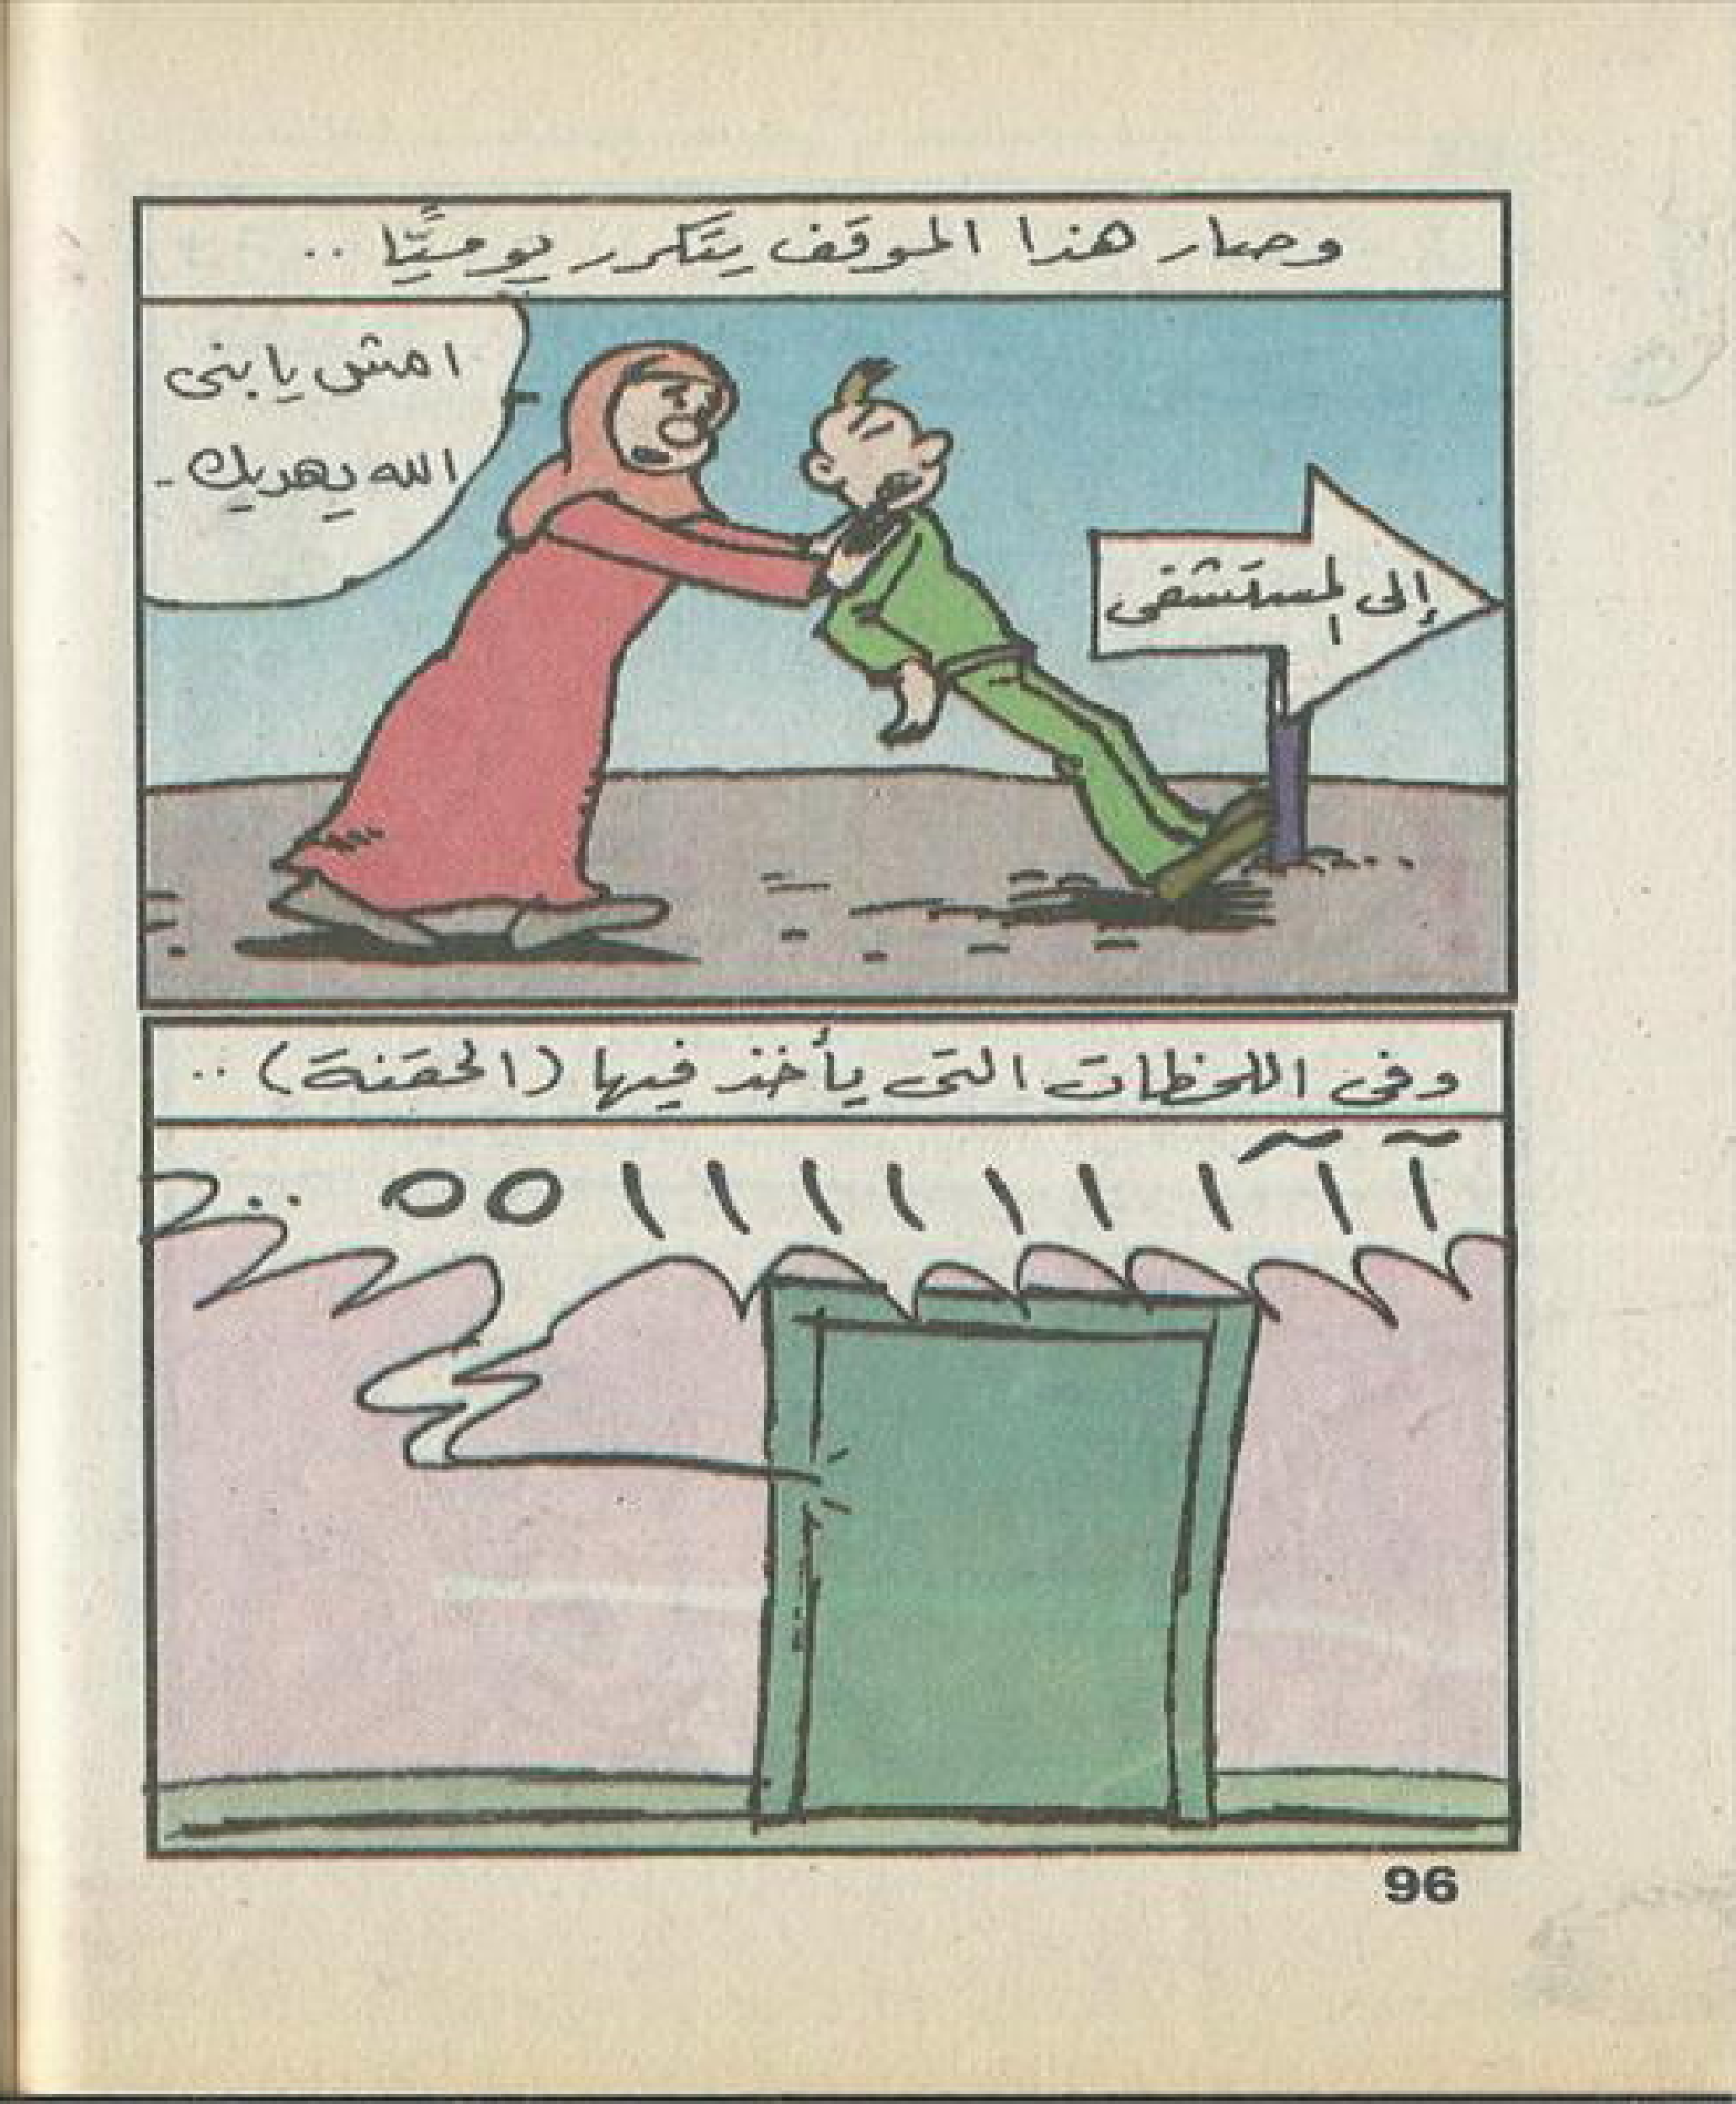 وصار هذا الموقف يتكرر يوميًّا ..
امش يا بنى
الله يهديك .
إلى المستشفى
وفى اللحظات التى يأخذ فيها (الحقنة) ..
آ آ ا ا ا ا ا ا ا ا ه ه ..
96